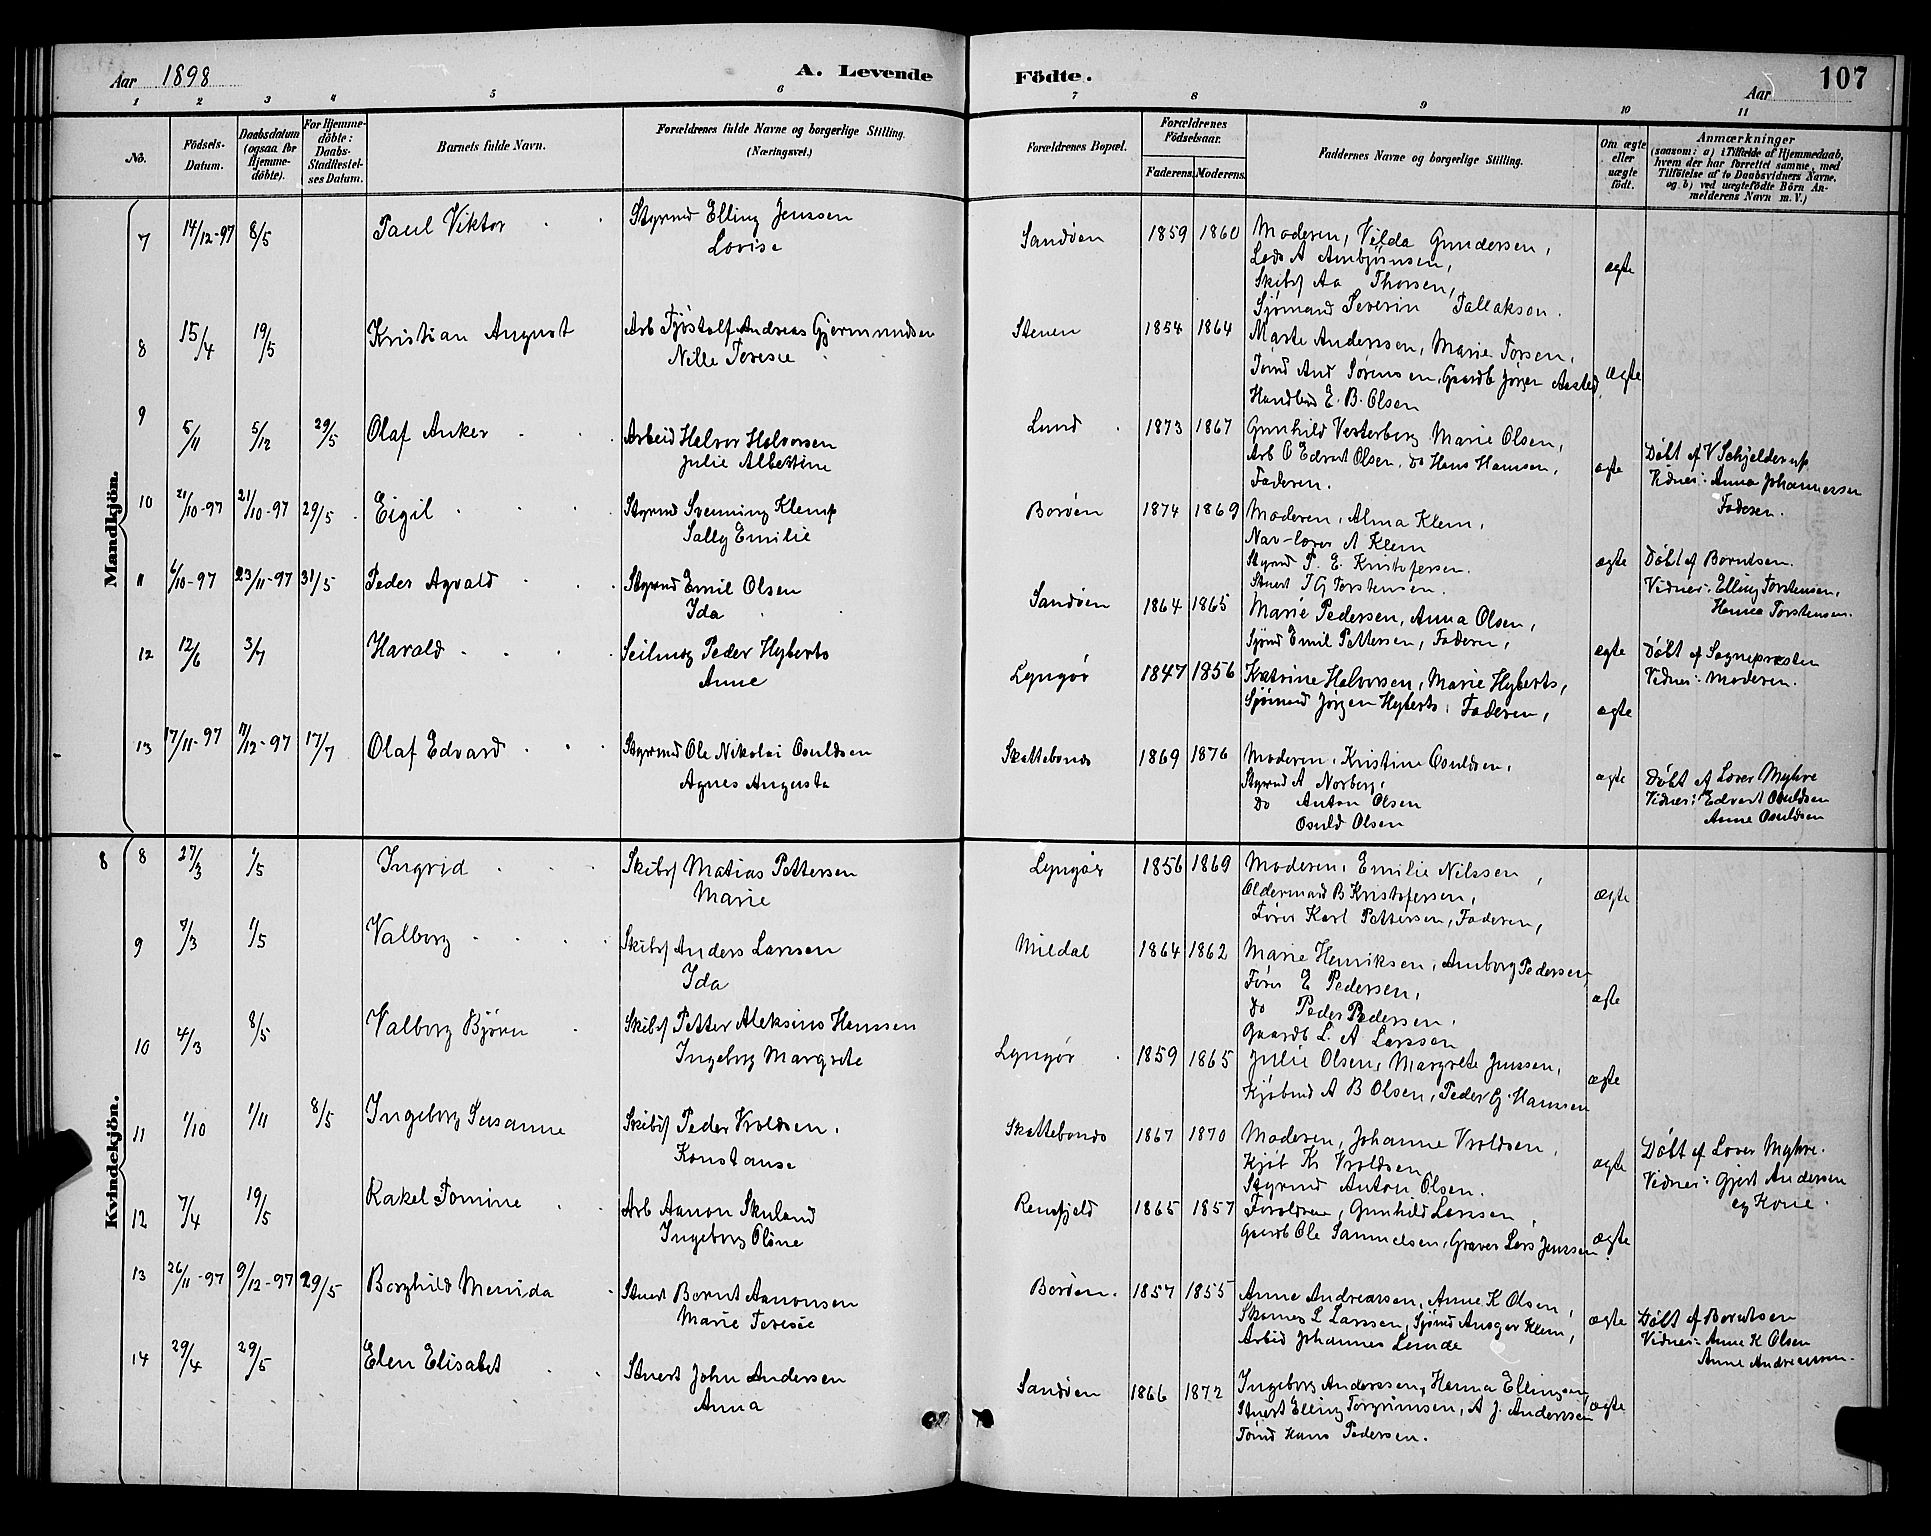 Aar 1898
A. Levende Födte.
Aar
107
1 2 3 4 5 6 7 8 9 10 11
No.
Födsels-Datum.
Daabsdatum (ogsaa for Hjemme-döbte).
For Hjemme-döbte: Daabs-Stadfæstel-ses Datum.
Barnets fulde Navn.
Forældrenes fulde Navne og borgerlige Stilling. (Næringsvei.)
Forældrenes Bopæl.
Forældrenes Födselsaar.
Faderens. Moderens.
Faddernes Navne og borgerlige Stilling.
Om ægte eller uægte födt.
Anmærkninger
(saasom: a) i Tilfælde af Hjemmedaab, hvem der har forrettet samme, med Tilföielse af to Daabsvidners Navne, og b) ved uægtefödte Börn An-melderens Navn m. V.)
Mandkjön.
7 14/12-97 8/5 Paul Viktor Styrmd Elling Jenssen
Lovise
Sandøen 1859 1860 Moderen, Vilda Gundersen,
Lods A Ambjørnsen,
Skibsf Aa Thorsen,
Sjømand Severin Tallaksen.
ægte
8 15/4 19/5 Kristian August Arb Tjøstolf Andreas Gjermundsen
Nille Teresie
Stenen 1854 1864 Marte Anderssen, Marie Torsen,
Tømd And Sørensen, Gaardb Jørgen Aasted,
Handlend E. B. Olsen
ægte
9 5/11 5/12 29/5 Olaf Anker Arbeid Halvor Halvorsen
Julie Albertine
Lund 1873 1867 Gunhild Vesterberg Marie Olsen,
Arb O Edvart Olsen, do Hans Hansen,
Faderen.
ægte
Døbt af V Schjelderup
Vidner: Anna Johannessen
Faderen.
10 21/10-97 21/10-97 29/5 Eigil Styrmd Svenning Klemp
Sally Emilie
Borøen 1874 1869 Moderen, Alma Klem,
Nav-lærer A Klem
Styrmd P. E. Kristofersen.
Stuert T G Torstensen.
ægte
Døbt af Berntsen.
Vidner: Elling Torstensen,
Hanna Torstensen.
11 6/10-97 23/11-97 31/5 Peder Agvald Styrmd Emil Olsen
Ida
Sandøen 1864 1865 Marie Pedersen, Anna Olsen,
Sjømd Emil Pettersen, Faderen,
ægte
Døbt af Sognepresten
Vidner: Moderen.
12 12/6 3/7 Harald Seilmag Peder Hyberts
Anne
Lyngør 1847 1856 Katrine Halvorsen, Marie Hyberts,
Sjømand Jørgen Hyberts, Faderen,
ægte
13 17/11-97 9/12-97 17/7 Olaf Edvard Styrmd Ole Nikolai Osuldsen
Agnes Augusta
Skattebonds 1869 1876 Moderen, Kristine Osuldsen,
Styrmd A Norberg,
do Anton Olsen
Osuld Olsen
ægte
Døbt af Lærer Myhre
Vidner: Edvart Osuldsen
Anne Osuldsen
Kvindekjön.
8
8 27/3 1/5 Ingrid Skibsf Matias Pettersen
Marie
Lyngør 1856 1869 Moderen, Emilie Nilssen,
Oldermand B Kristofersen,
Fører Karl Pettersen, Faderen,
ægte
9 9/3 1/5 Valborg Skibsf Anders Larssen
Ida
Mildal 1864 1862 Marie Henriksen, Amborg Pedersen,
Fører E Pedersen,
do Peder Pedersen,
Gaardb L. A Larssen
ægte
10 4/3 8/5 Valborg Bjørn Skibsf Petter Aleksius Hanssen
Ingeborg Margrete
Lyngør 1859 1865 Julie Olsen, Margrete Jenssen,
Kjøbmd A B Olsen, Peder G. Hanssen
ægte
11 1/10 1/11 8/5 Ingeborg Susanne Skibsf Peder Vroldsen,
Konstanse
Skattebonds 1867 1870 Moderen, Johanne Vroldsen,
Kjøb Kr Vroldsen
Styrmd Anton Olsen.
ægte
Døbt af Lærer Myhre.
Vidner: Gjert Andersen
og Kone.
12 7/4 19/5 Rakel Tomine Arb Aanon Skuland
Ingeborg Oline
Rensfjeld 1865 1857 Foroldrene, Gunhild Larssen,
Gaardb Ole Samuelsen, Graver Lars Jenssen
ægte
13 26/11-97 9/12-97 29/5 Borghild Menida Stuert Bernt Aanonsen
Marie Teresie
Borøen. 1857 1855 Anne Andreassen, Anne K Olsen,
Skomag L Larssen, Sjømd Ansger Klem,
Arbeid Johannes Lunde
ægte
Døbt af Berntsen
Vidner: Anne K Olsen
Anne Andreassen.
14 29/4 29/5 Elen Elisabet Stuert John Andersen
Anna
Sandøen 1866 1872 Ingeborg Anderssen, Hanna Ellingsen,
Stuert Elling Torgrimsen, A J. Anderssen
Tømd Hans Pedersen.
ægte